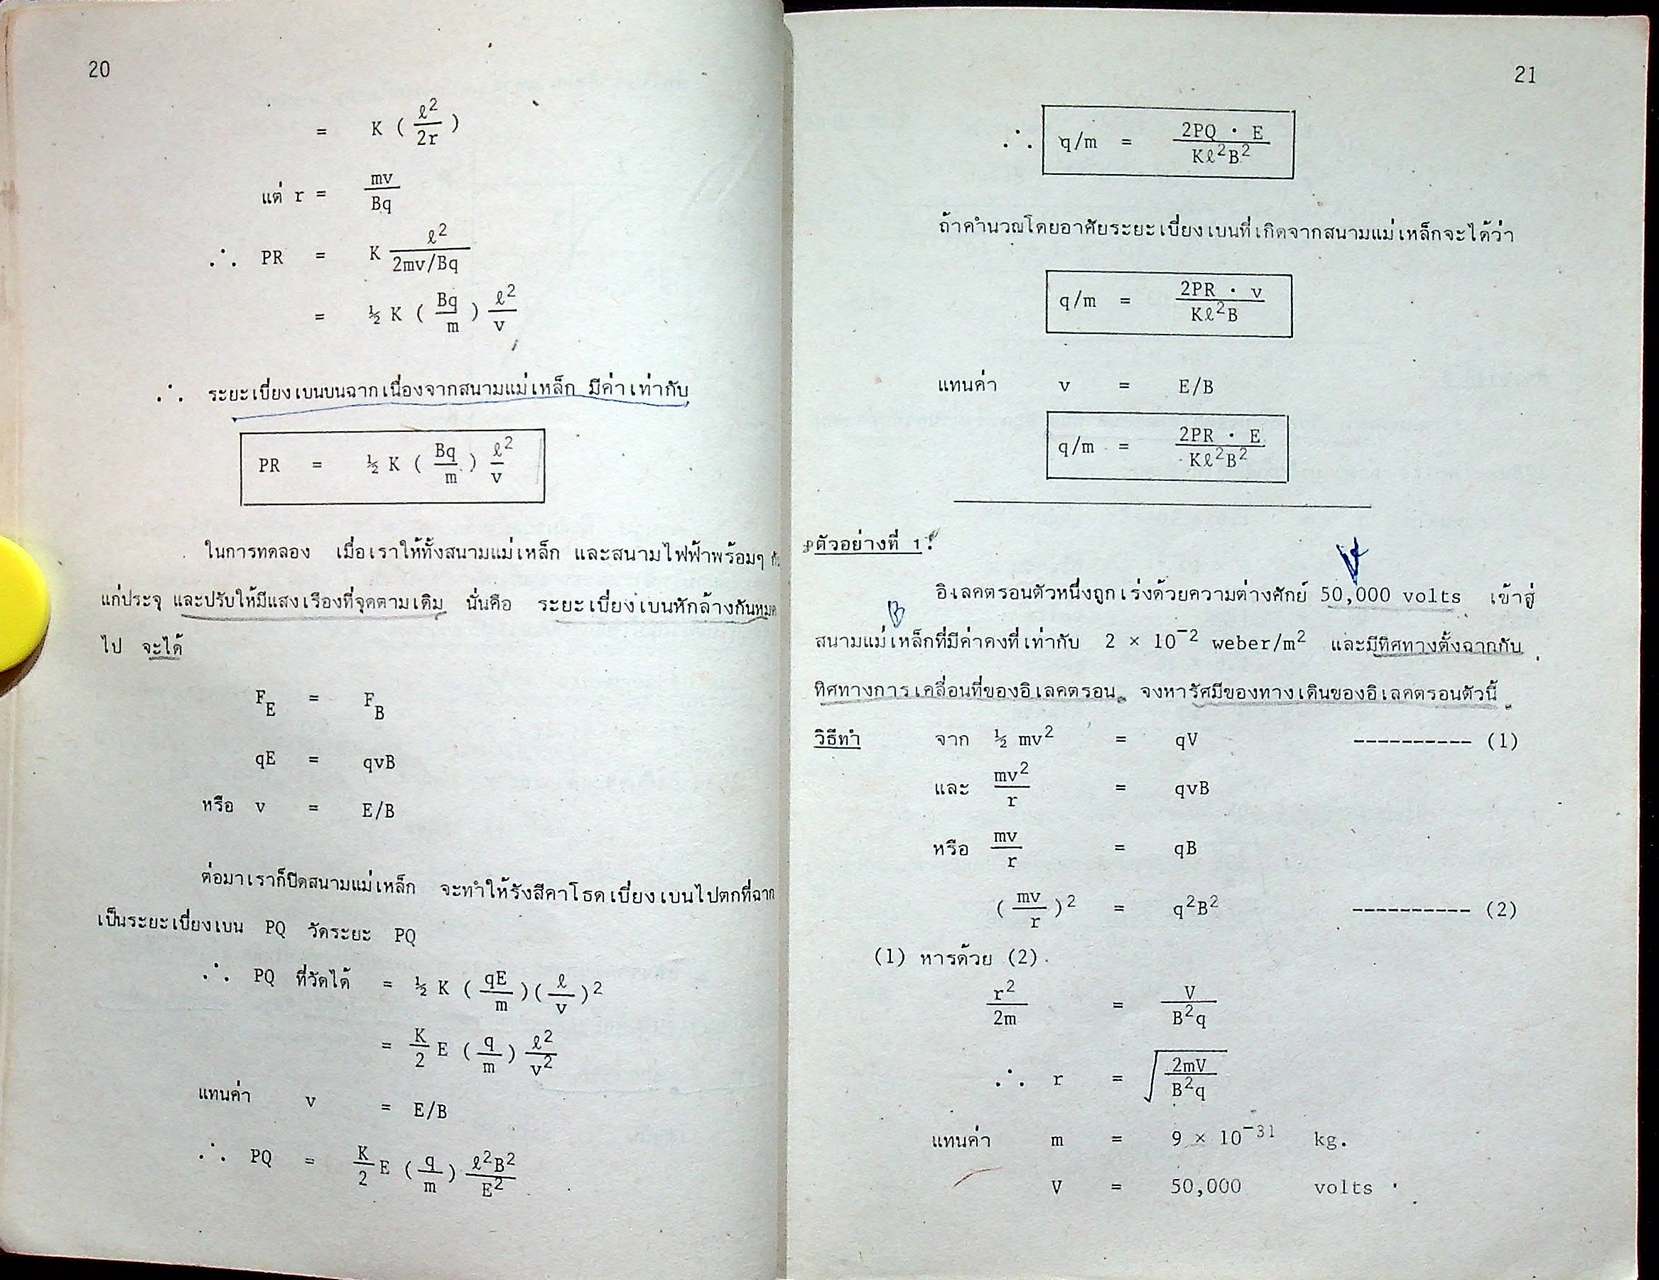 20
= K ( ℓ²/2r )
แต่ r = mv/Bq
∴ PR = K ℓ²/(2mv/Bq)
= ½ K ( Bq/m ) ℓ²/v
∴ ระยะเบี่ยงเบนบนฉากเนื่องจากสนามแม่เหล็ก มีค่าเท่ากับ
PR = ½ K ( Bq/m ) ℓ²/v
ในการทดลอง เมื่อเราให้ทั้งสนามแม่เหล็ก และสนามไฟฟ้าพร้อมๆ
แก่ประจุ และปรับให้มีแสงเรืองที่จุดตามเดิม นั่นคือ ระยะเบี่ยงเบนหักล้างกันหมด
ไป จะได้
F_E = F_B
qE = qvB
หรือ v = E/B
ต่อมาเราก็ปิดสนามแม่เหล็ก จะทำให้รังสีคาโธดเบี่ยงเบนไปตกที่ฉาก
เป็นระยะเบี่ยงเบน PQ วัดระยะ PQ
∴ PQ ที่วัดได้ = ½ K ( qE/m )( ℓ/v )²
= K/2 E ( q/m ) ℓ²/v²
แทนค่า v = E/B
∴ PQ = K/2 E ( q/m ) ℓ²B²/E²
21
∴ q/m = 2PQ · E/Kℓ²B²
ถ้าคำนวณโดยอาศัยระยะเบี่ยงเบนที่เกิดจากสนามแม่เหล็กจะได้ว่า
q/m = 2PR · v/Kℓ²B
แทนค่า v = E/B
q/m = 2PR · E/Kℓ²B²
ตัวอย่างที่ 1.
V
อิเลคตรอนตัวหนึ่งถูกเร่งด้วยความต่างศักย์ 50,000 volts เข้าสู่
B
สนามแม่เหล็กที่มีค่าคงที่เท่ากับ 2 × 10⁻² weber/m² และมีทิศทางตั้งฉากกับ
ทิศทางการเคลื่อนที่ของอิเลคตรอน จงหารัศมีของทางเดินของอิเลคตรอนตัวนี้
วิธีทำ จาก ½ mv² = qV ---------- (1)
และ mv²/r = qvB
หรือ mv/r = qB
( mv/r )² = q²B² ---------- (2)
(1) หารด้วย (2)
r²/2m = V/B²q
∴ r = √(2mV/B²q)
แทนค่า m = 9 × 10⁻³¹ kg.
V = 50,000 volts